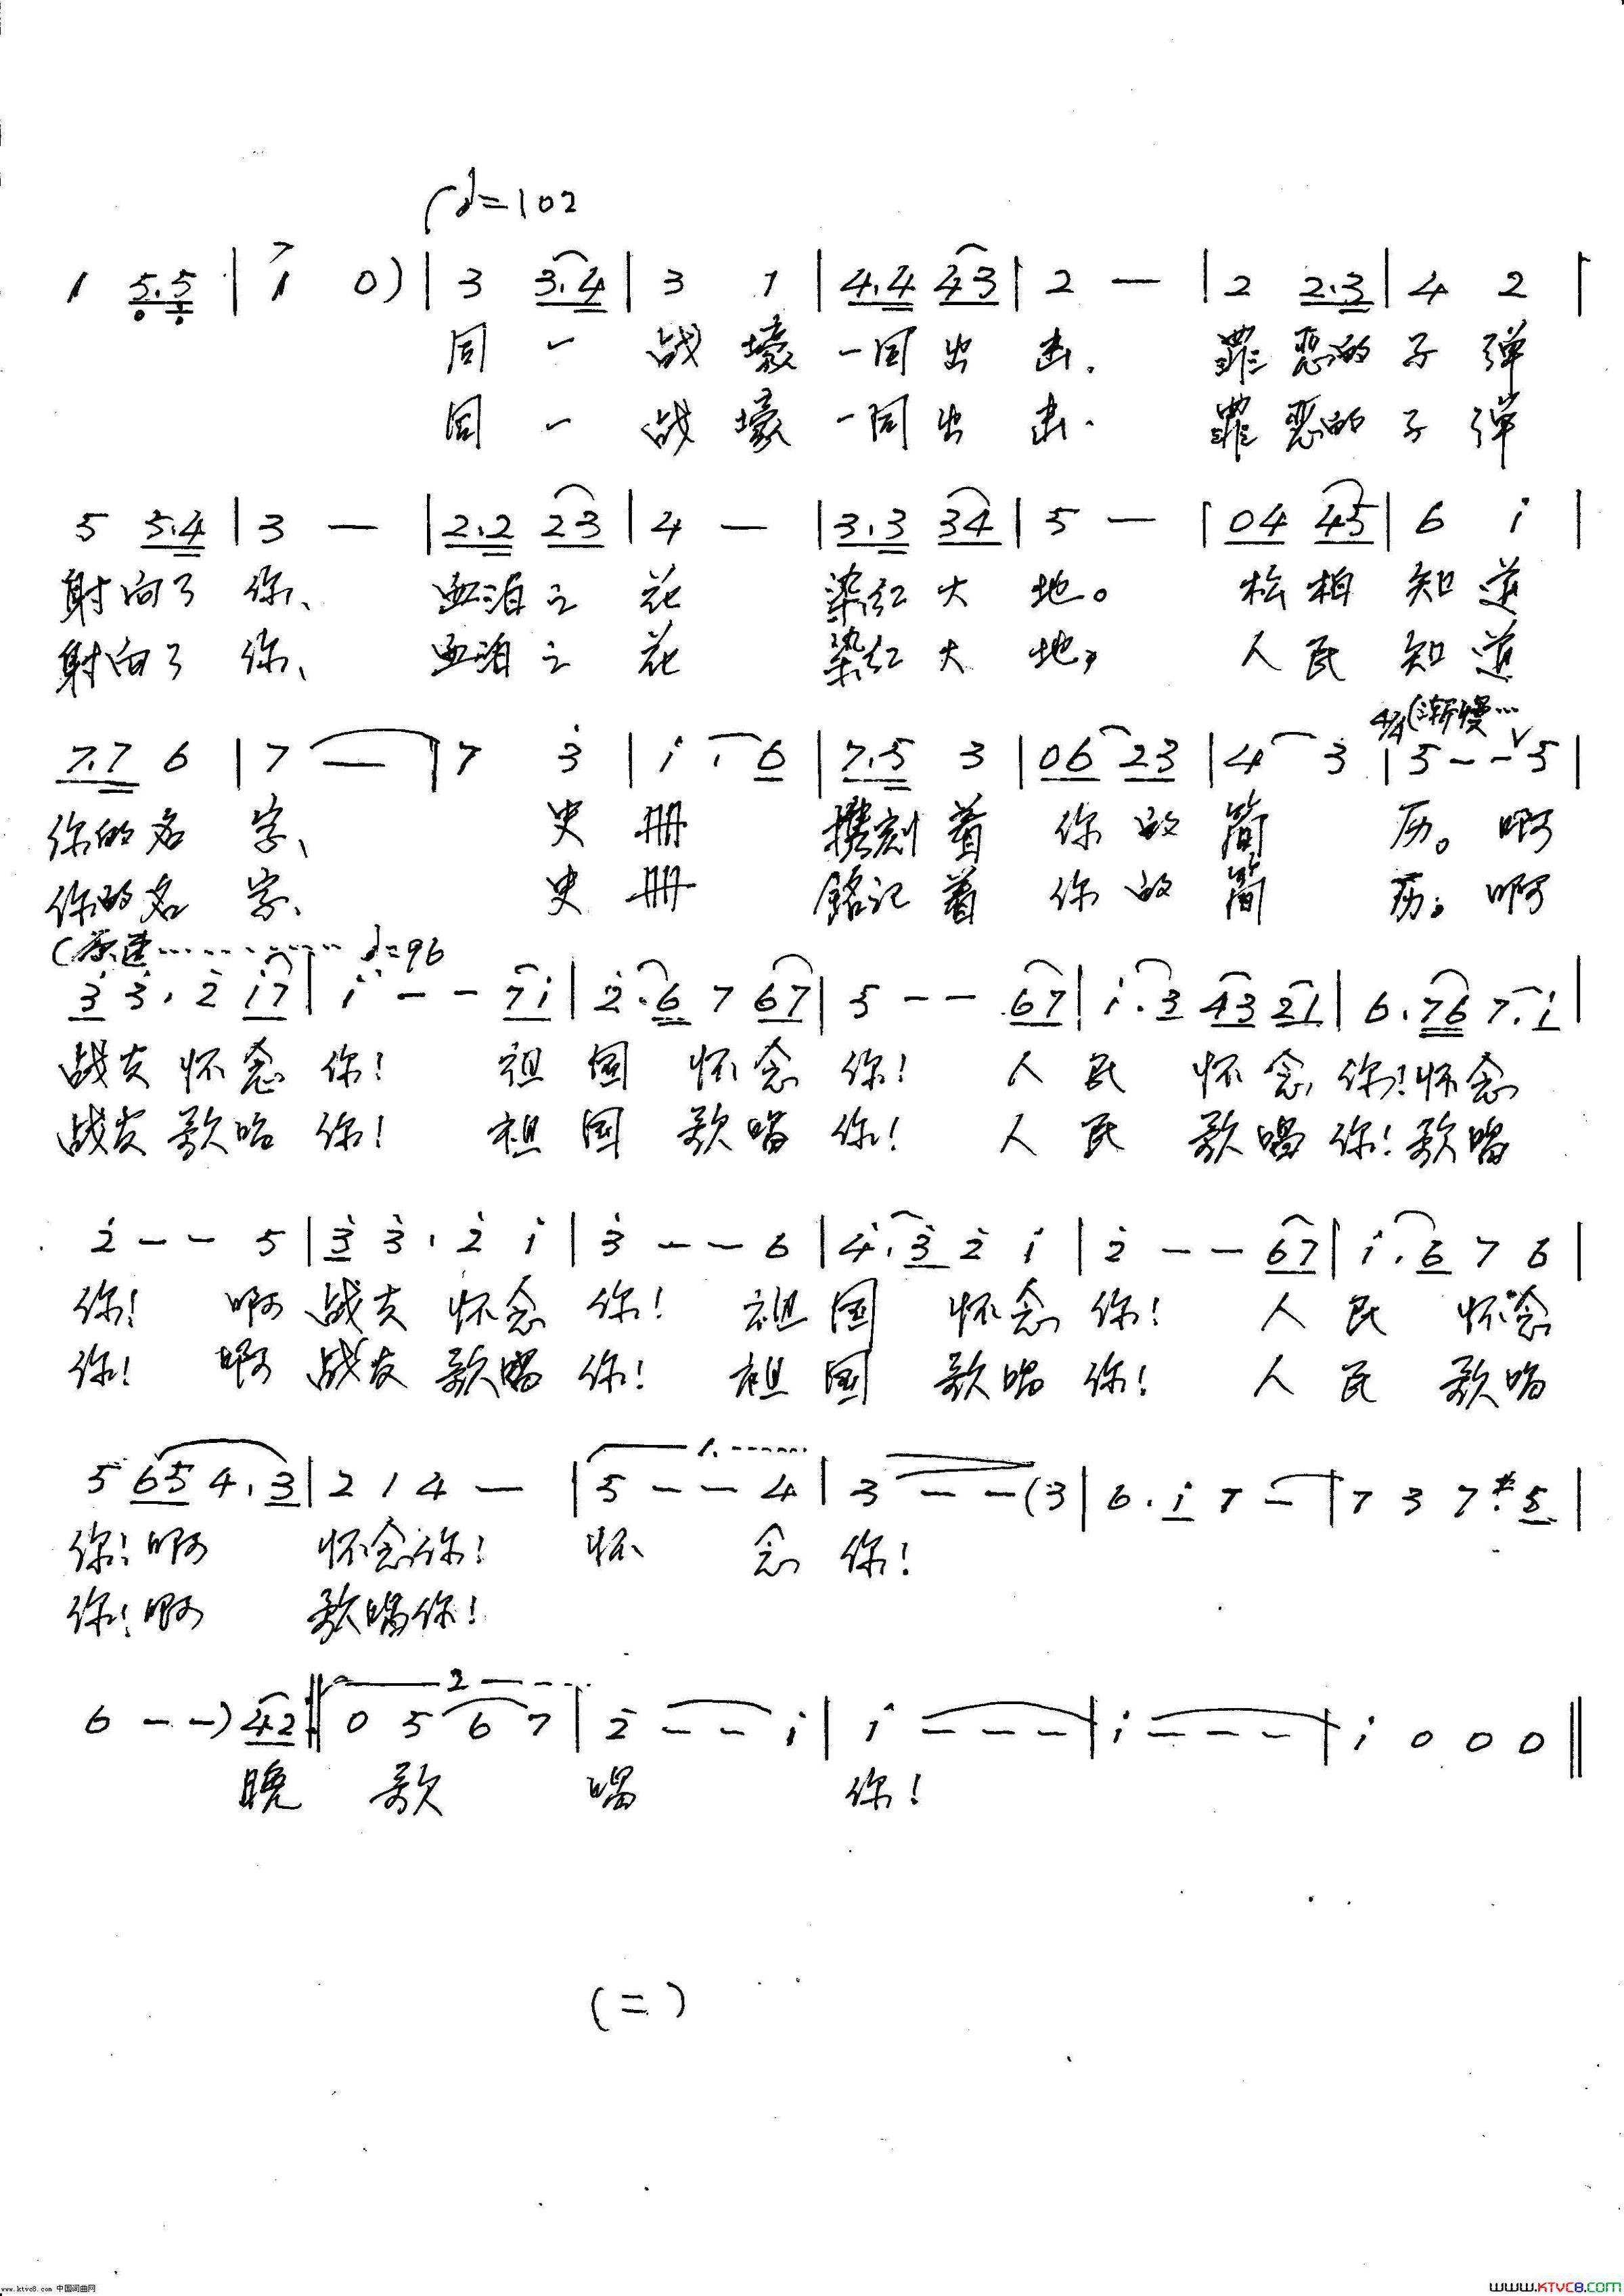 ♩=102
1 5.5 | 1 0) | 3 3.4 | 3 1 | 4.4 43 | 2 — | 2 2.3 | 4 2 |
同 一 战 壕 一同 出 击. 罪 恶的 子 弹
同 一 战 壕 一同 出 击. 罪 恶的 子 弹
5 5.4 | 3 — | 2.2 23 | 4 — | 3.3 34 | 5 — | 04 45 | 6 i |
射向了 你、 血泊之 花 染红大 地。 松柏 知道
射向了 你、 血泊之 花 染红大 地, 人民 知道
4/4 (渐慢…
7.7 6 | 7 — | 7 3 | i . 6 | 7.5 3 | 06 23 | 4 3 | 5 - - 5 |
你的名 字、 史 册 刻着 你的 简 历。 啊
你的名 字、 史 册 铭记着 你的 简 历; 啊
(原速………… ♩=96
3 3. 2 i7 | i - - 7i | 2.6 7 67 | 5 - - 67 | i.3 43 21 | 6.76 7.i |
战友怀念 你! 祖国 怀念 你! 人民 怀念你!怀念
战友歌唱 你! 祖国 歌唱 你! 人民 歌唱你!歌唱
2 - - 5 | 3 3. 2 i | 3 - - 6 | 4.3 2 i | 2 - - 67 | i.6 7 6 |
你! 啊 战友 怀念 你! 祖国 怀念 你! 人民 怀念
你! 啊 战友 歌唱 你! 祖国 歌唱 你! 人民 歌唱
1. ……
5 65 4.3 | 2 1 4 — | 5 - - 4 | 3 - - (3 | 6.i 7 - | 7 3 7 #.5 |
你!啊 怀念你! 怀 念 你!
你!啊 歌唱你!
2 — - - -
6 - -) 42 :‖ 0 5 6 7 | 2 - - i | i - - - | i - - - | i 0 0 0 ‖
晚 歌 唱 你!
(二)
www.ktvc8.com 中国词曲网
WWW.KTVC8.COM